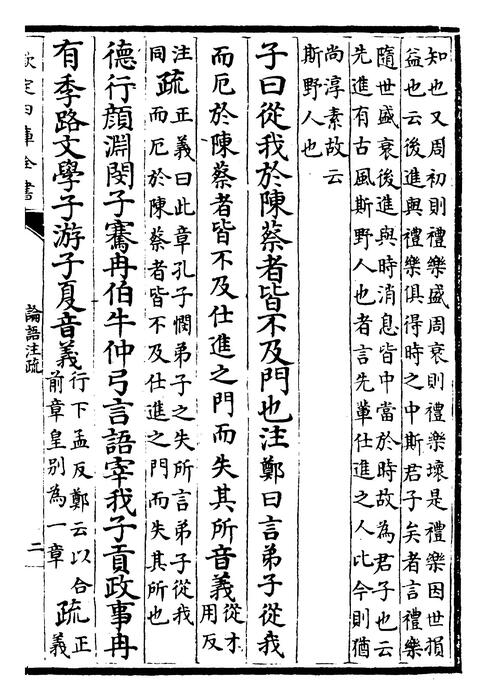 知也又周初則禮樂盛周衰則禮樂壞是禮樂因世損
益也云後進與禮樂俱得時之中斯君子矣者言禮樂
隨世盛衰後進與時消息皆中當於時故為君子也云
先進有古風斯野人也者言先輩仕進之人比今則猶
尚淳素故云
斯野人也
子曰從我於陳蔡者皆不及門也注鄭曰言弟子從我
而厄於陳蔡者皆不及仕進之門而失其所音義從才用反
注同疏正義曰此章孔子憫弟子之失所言弟子從我
而厄於陳蔡者皆不及仕進之門而失其所也
德行顏淵閔子騫冉伯牛仲弓言語宰我子貢政事冉
有季路文學子游子夏音義行下孟反鄭云以合前章皇別為一章疏正義
欽定四庫全書
論語注疏
二